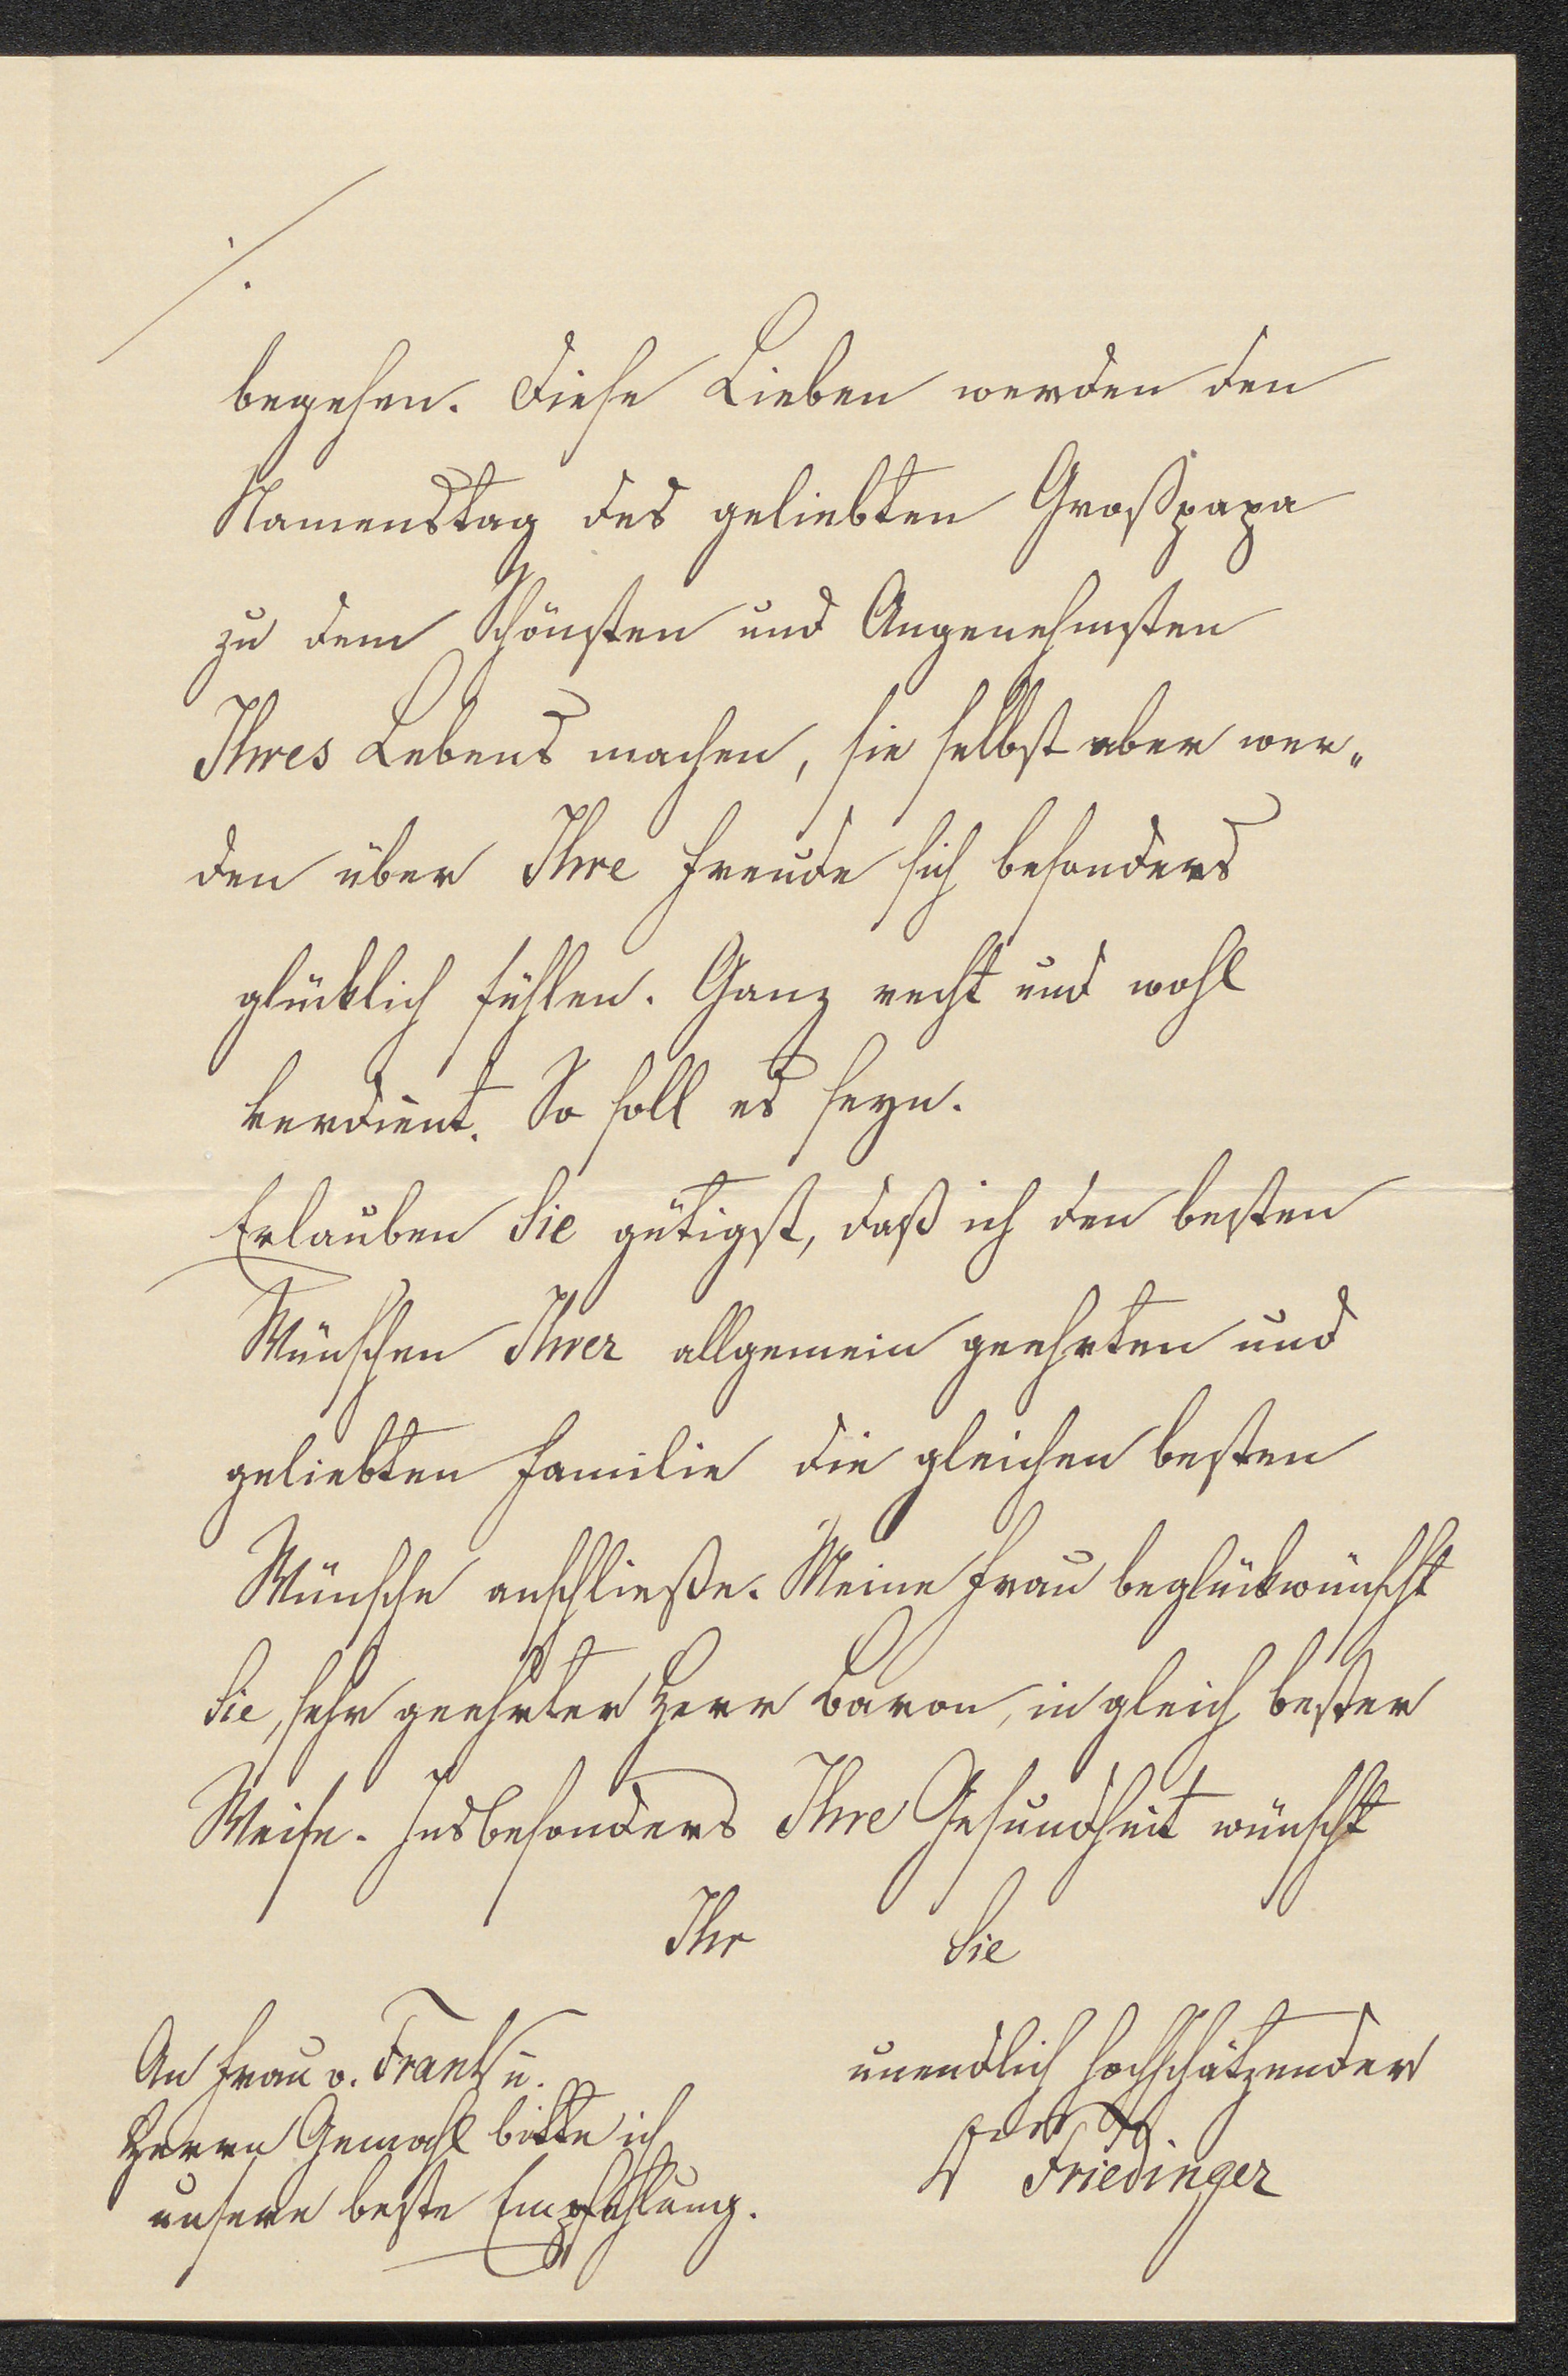 ./.
begehen. Diese Lieben werden den
Namenstag des geliebten Großpapa
zu dem Schönsten und Angenehmsten
Ihres Lebens machen, sie selbst aber wer„
den über Ihre Freude sich besonders
glücklich fühlen. Ganz recht und wohl
verdient. So soll es seyn.
Erlauben Sie gütigst, daß ich den besten
Wünschen Ihrer allgemein geehrten und
geliebten Familie die gleichen besten
Wünsche anschließe. Meine Frau beglückwünscht
Sie, sehr geehrter Herr Baron, in gleich bester
Weise. Insbesonders Ihre Gesundheit wünscht
Ihr Sie
unendlich hochschätzender
Friedinger
An Frau v. Frank u.
Herrn Gemahl bitte ich
unsere beste Empfehlung.